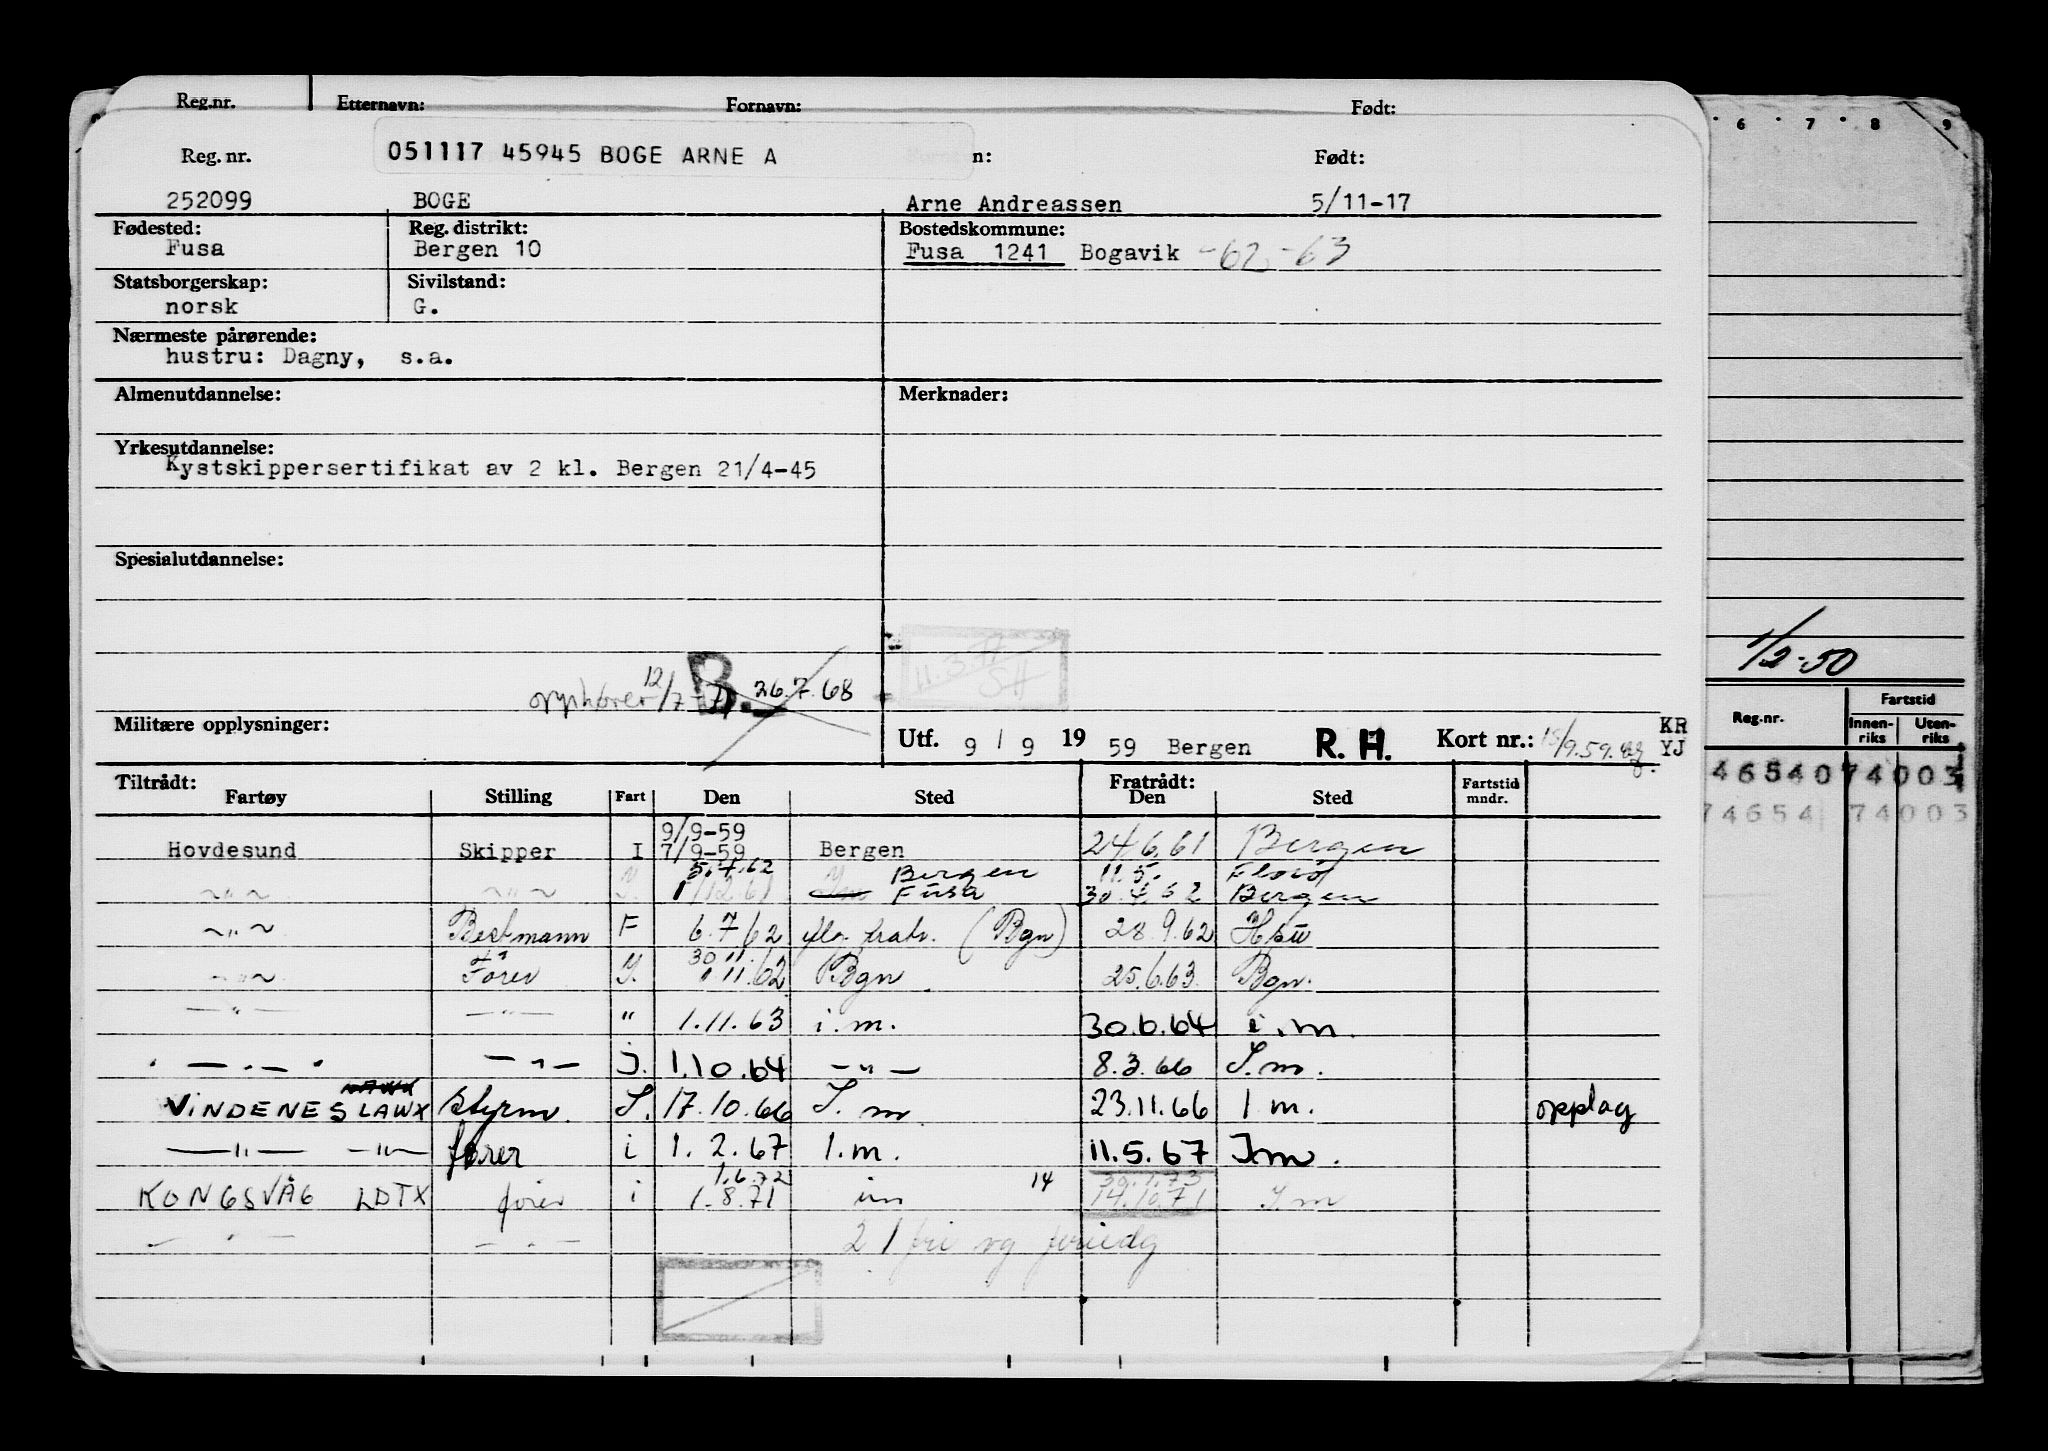 Reg.nr. Etternavn: Fornavn: Født:
Reg. nr. 051117 45945 BOGE ARNE A n: Født:
252099 BOGE Arne Andreassen 5/11-17
Fødested: Reg. distrikt: Bostedskommune:
Fusa Bergen 10 Fusa 1241 Bogavik -62-63
Statsborgerskap: Sivilstand:
norsk G.
Nærmeste pårørende:
hustru: Dagny, s.a.
Almenutdannelse: Merknader:
Yrkesutdannelse:
Kystskippersertifikat av 2 kl. Bergen 21/4-45
Spesialutdannelse:
11.3.77
SH
opphører 12/7-71 B. 26.7.68
Militære opplysninger: Utf. 9 / 9 19 59 Bergen R. H. Kort nr.: 15/9.59. KR
YJ
Tiltrådt: Fratrådt:
Fartøy Stilling Fart Den Sted Den Sted Fartstid mndr.
9/9-59
Hovdesund Skipper I 7/9-59 Bergen 24.6.61 Bergen
5.7.62 Bergen 11.5. Florø
-"- -"- I. 1/12.61 Fusa 30.4.62 Bergen
-"- Bestmann F 6.7.62 (Bgn) 28.9.62
30 11.
-"- Fører I. 1 11.62 Bgn 25.6.63 Bgn.
-"- -"- " 1.11.63 i.m. 30.6.64 i.m.
-"- -"- J. 1.10.64 -"- 8.3.66 I.m.
VINDENES LAWX Styrm. I. 17.10.66 I.m 23.11.66 I m. opplag
-"- -"- fører i 1. 2.67 I.m. 11.5.67 I.m.
1.6.72 14 30.1.73
KONGSVÅG LDTX fører i 1.8.71 im 14.10.71 I.m
-"- -"- 21 fri og feriedg
6 7 8 9
1/2-50
Reg.nr. Fartstid
Innen-riks Uten-riks
46540 74003
74654 74003